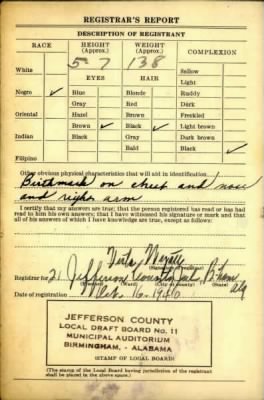 REGISTRAR'S REPORT
DESCRIPTION OF REGISTRANT
RACE HEIGHT (Approx.) WEIGHT (Approx.) COMPLEXION
5 7 138
White Sallow
EYES HAIR Light
Negro ✓ Blue Blonde Ruddy
Gray Red Dark
Oriental Hazel Brown Freckled
Brown ✓ Black ✓ Light brown
Indian Black Gray Dark brown
Bald Black ✓
Filipino
Other obvious physical characteristics that will aid in identification
Birthmark on chest and nose
and right arm
I certify that my answers are true; that the person registered has read or has had
read to him his own answers; that I have witnessed his signature or mark and that
all of his answers of which I have knowledge are true, except as follows:
Wyatt
(Signature of registrar)
Registrar for 21 Jefferson County Jail B'ham Ala
(Precinct) (Ward) (City or county) (State)
Date of registration Oct. 16 - 1940
JEFFERSON COUNTY
LOCAL DRAFT BOARD No. 11
MUNICIPAL AUDITORIUM
BIRMINGHAM, - ALABAMA
(STAMP OF LOCAL BOARD)
(The stamp of the Local Board having jurisdiction of the registrant
shall be placed in the above space.)